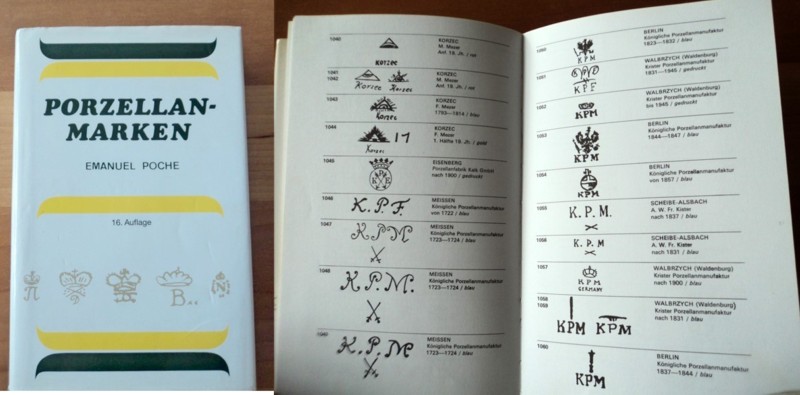 PORZELLAN-
MARKEN
EMANUEL POCHE
16. Auflage
B..
N
1040
KORZEC
M. Mezer
Anf. 19. Jh. / rot
Korzec
1041
1042
KORZEC
M. Mezer
Anf. 19. Jh. / rot
Korzec Korzec
1043
KORZEC
F. Mezer
Korzec
1044
KORZEC
F. Mezer
1. Hälfte 19. Jh. / gold
17
1045
EISENBERG
Porzellanfabrik Kalk GmbH
nach 1900 / gedruckt
1046
K.P.F.
MEISSEN
Königliche Porzellanmanufaktur
von 1722 / blau
1047
KPM
MEISSEN
Königliche Porzellanmanufaktur
1723—1724 / blau
1048
K.P.M.
MEISSEN
Königliche Porzellanmanufaktur
1723—1724 / blau
K.P.M
MEISSEN
Königliche Porzellanmanufaktur
1723—1724 / blau
1050
KPM
BERLIN
Königliche Porzellanmanufaktur
1823—1832 / blau
1051
KPF
WALBRZYCH (Waldenburg)
Krister Porzellanmanufaktur
1831—1945 / gedruckt
1052
KPM
WALBRZYCH (Waldenburg)
Krister Porzellanmanufaktur
bis 1945 / gedruckt
1053
KPM
BERLIN
Königliche Porzellanmanufaktur
1844—1847 / blau
1054
KPM
BERLIN
Königliche Porzellanmanufaktur
von 1857 / blau
1055
K.P.M.
SCHEIBE-ALSBACH
A. W. Fr. Kister
nach 1837 / blau
1056
K.P.M
SCHEIBE-ALSBACH
A. W. Fr. Kister
nach 1831 / blau
1057
K.P.M.
GERMANY
WALBRZYCH (Waldenburg)
Krister Porzellanmanufaktur
nach 1900 / blau
1058
1059
KPM KPM
WALBRZYCH (Waldenburg)
Krister Porzellanmanufaktur
nach 1831 / blau
1060
KPM
BERLIN
Königliche Porzellanmanufaktur
1837—1844 / blau